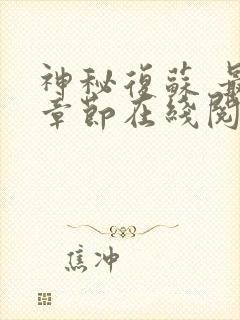 神秘復蘇 最
章節在綫閱
焦冲